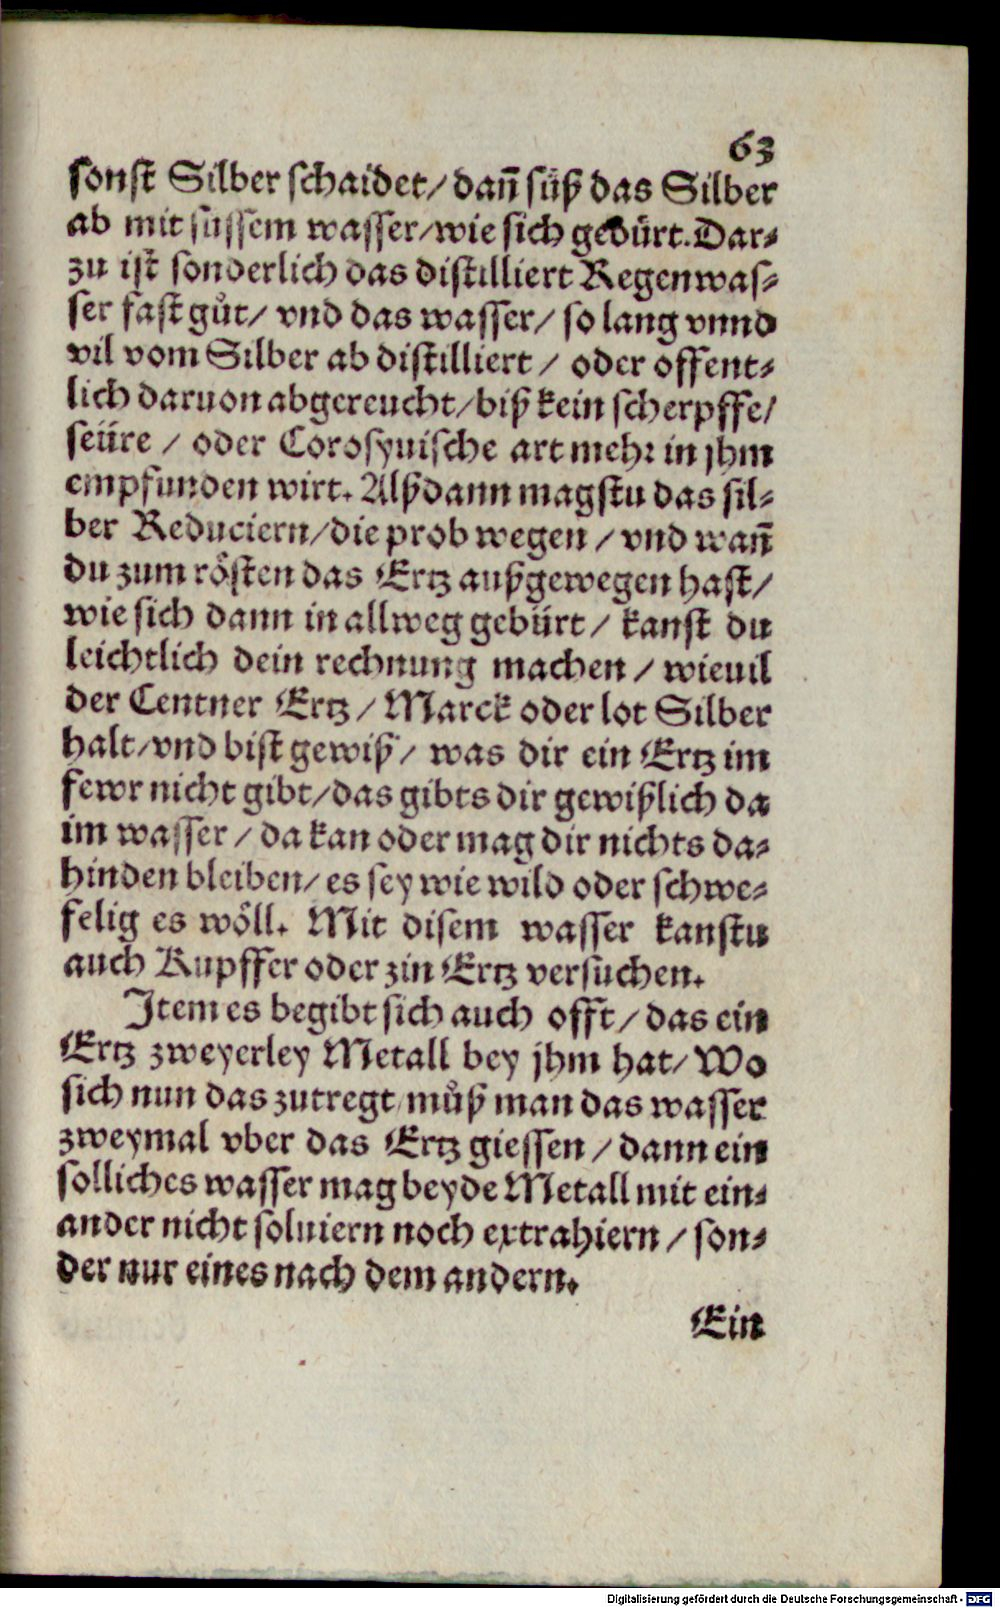 63
sonst Silber schaidet/ dañ süß das Silber
ab mit süssem wasser/ wie sich gebürt. Dar⸗
zu ist sonderlich das distilliert Regenwas⸗
ser fast gůt/ vnd das wasser/ so lang vnnd
vil vom Silber ab distilliert / oder offent⸗
lich daruon abgereucht/ biß kein scherpffe/
seüre / oder Corosyuische art mehr in jhm
empfunden wirt. Alßdann magstu das sil⸗
ber Reduciern/ die prob wegen / vnd wañ
du zum rösten das Ertz außgewegen hast/
wie sich dann in allweg gebürt / kanst du
leichtlich dein rechnung machen / wieuil
der Centner Ertz / Marck oder lot Silber
halt/ vnd bist gewiß / was dir ein Ertz im
fewr nicht gibt/ das gibts dir gewißlich da
im wasser / da kan oder mag dir nichts da⸗
hinden bleiben/ es sey wie wild oder schwe⸗
felig es wöll. Mit disem wasser kanstu
auch Kupffer oder zin Ertz versuchen.
Item es begibt sich auch offt / das ein
Ertz zweyerley Metall bey jhm hat/ Wo
sich nun das zutregt/ můß man das wasser
zweymal vber das Ertz giessen / dann ein
solliches wasser mag beyde Metall mit ein⸗
ander nicht soluiern noch extrahiern / son⸗
der nur eines nach dem andern.
Ein
Digitalisierung gefördert durch die Deutsche Forschungsgemeinschaft - DFG